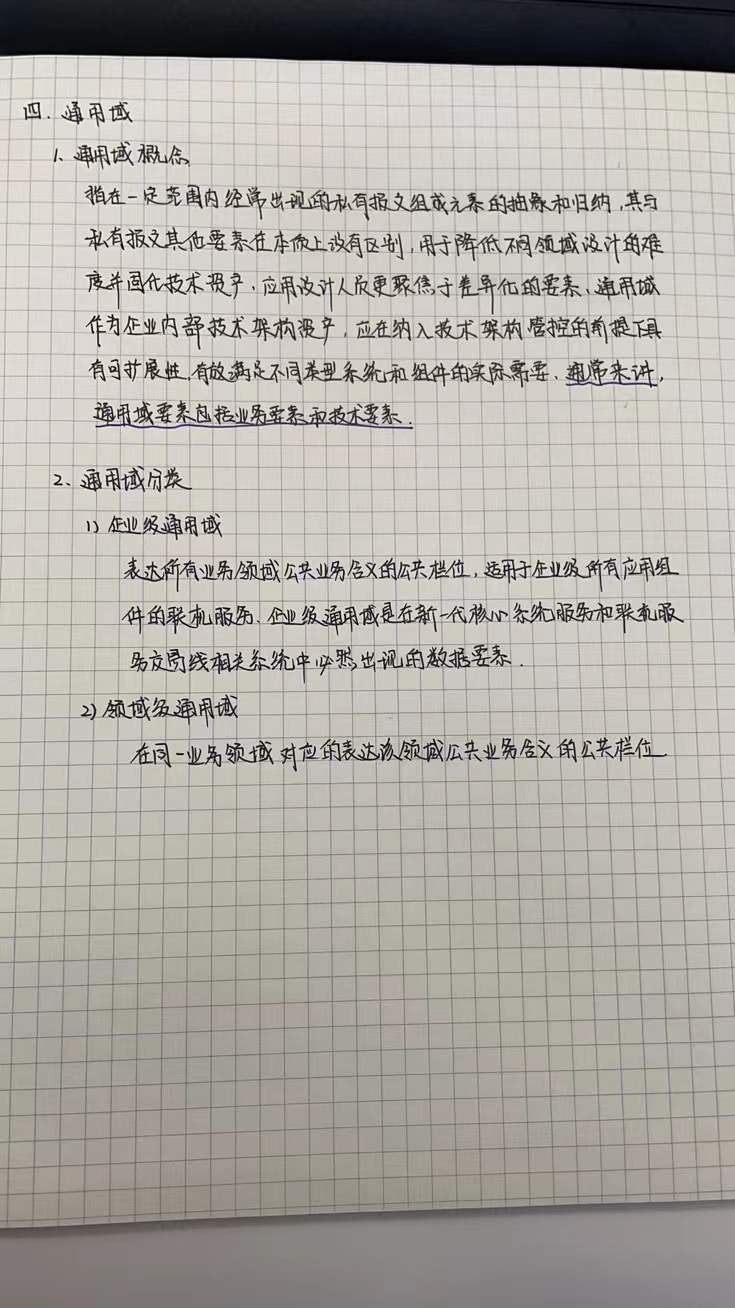 四. 通用域
1. 通用域概念
指在一定范围内经常出现的私有报文组或元素的抽象和归纳,其与
私有报文其他要素在本质上没有区别,用于降低不同领域设计的难
度并固化技术资产,应用设计人员更聚焦于差异化的要素、通用域
作为企业内部技术架构资产,应在纳入技术架构管控的前提下具
有可扩展性,有效满足不同类型系统和组件的实际需要、通常来讲,
通用域要素包括业务要素和技术要素.
2、通用域分类
1) 企业级通用域
表达所有业务领域公共业务含义的公共栏位,适用于企业级所有应用组
件的联机服务、企业级通用域是在新一代核心系统服务和联机服
务交易线相关系统中必然出现的数据要素.
2) 领域级通用域
在同一业务领域对应的表达该领域公共业务含义的公共栏位